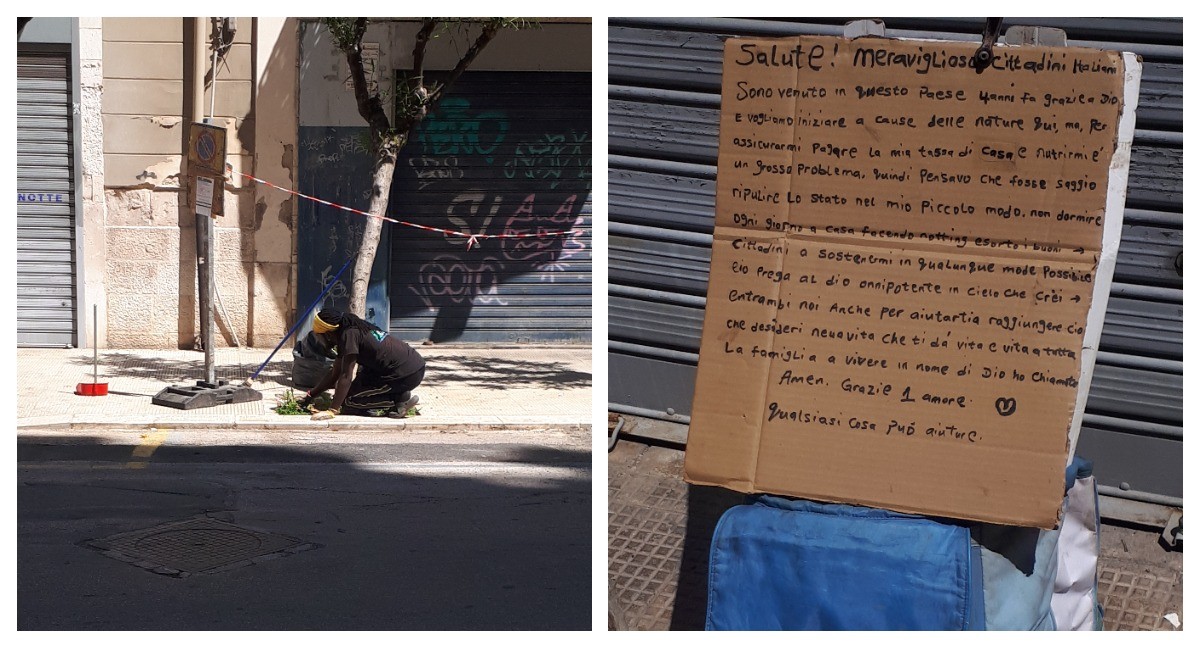 NOTTE
Salute! Meravigliosi Cittadini Italiani
Sono venuto in questo Paese 4anni fa grazie a Dio
E vogliamo iniziare a cause delle nature qui, ma, Per
assicurarmi Pagare La mia tassa di Casa e nutrirmi e'
un grosso Problema, quindi Pensavo che fosse saggio
ripulire Lo Stato nel mio Piccolo modo, non dormire
ogni giorno a casa facendo notting esorto i buoni →
Cittadini a sostenermi in qualunque mode Possibile
Eio prega al dio onnipotente in cielo che Crei →
entrambi noi Anche per aiutartia raggiungere Cio
che desideri neua vita che ti dá vita e vita a tutta
La famiglia a vivere in nome di Dio ho Chiamato
Amen. Grazie 1 amore.
qualsiasi Cosa Puó aiutare.